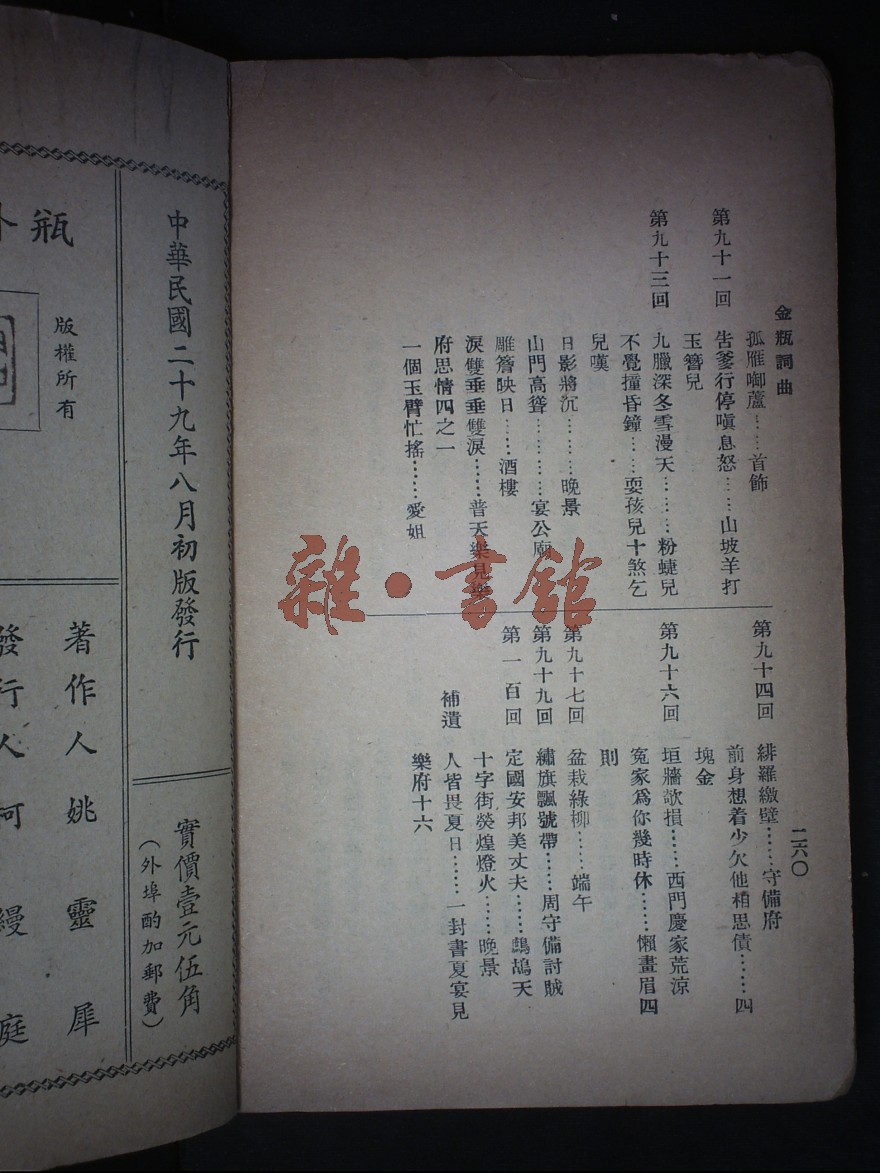 金瓶詞曲
二六〇
孤雁啣蘆……首飾
第九十一回
告爹行停嗔息怒……山坡羊打
玉簪兒
九臘深冬雪漫天………粉蝶兒
第九十三回
不覺撞昏鐘……耍孩兒十煞乞
兒嘆
日影將沉………晚景
山門高聳…………宴公廟
雕簷映日……酒樓
淚雙垂垂雙淚……普天樂見
府思情四之一
一個玉臂忙搖……愛姐
第九十四回
緋羅繳壁……守備府
前身想着少欠他相思債……四
塊金
第九十六回
垣牆欹損……西門慶家荒涼
冤家爲你幾時休……懶畫眉四
則
第九十七回
盆栽綠柳……端午
第九十九回
繡旗飄號帶……周守備討賊
第一百回
定國安邦美丈夫……鷓鴣天
十字街熒煌燈火……晚景
補遺
人皆畏夏日……一封書夏宴見
樂府十六
中華民國二十九年八月初版發行
實價壹元伍角
（外埠酌加郵費）
瓶外
版權所有
著作人姚靈犀
發行人柯縵庭
雜·書館